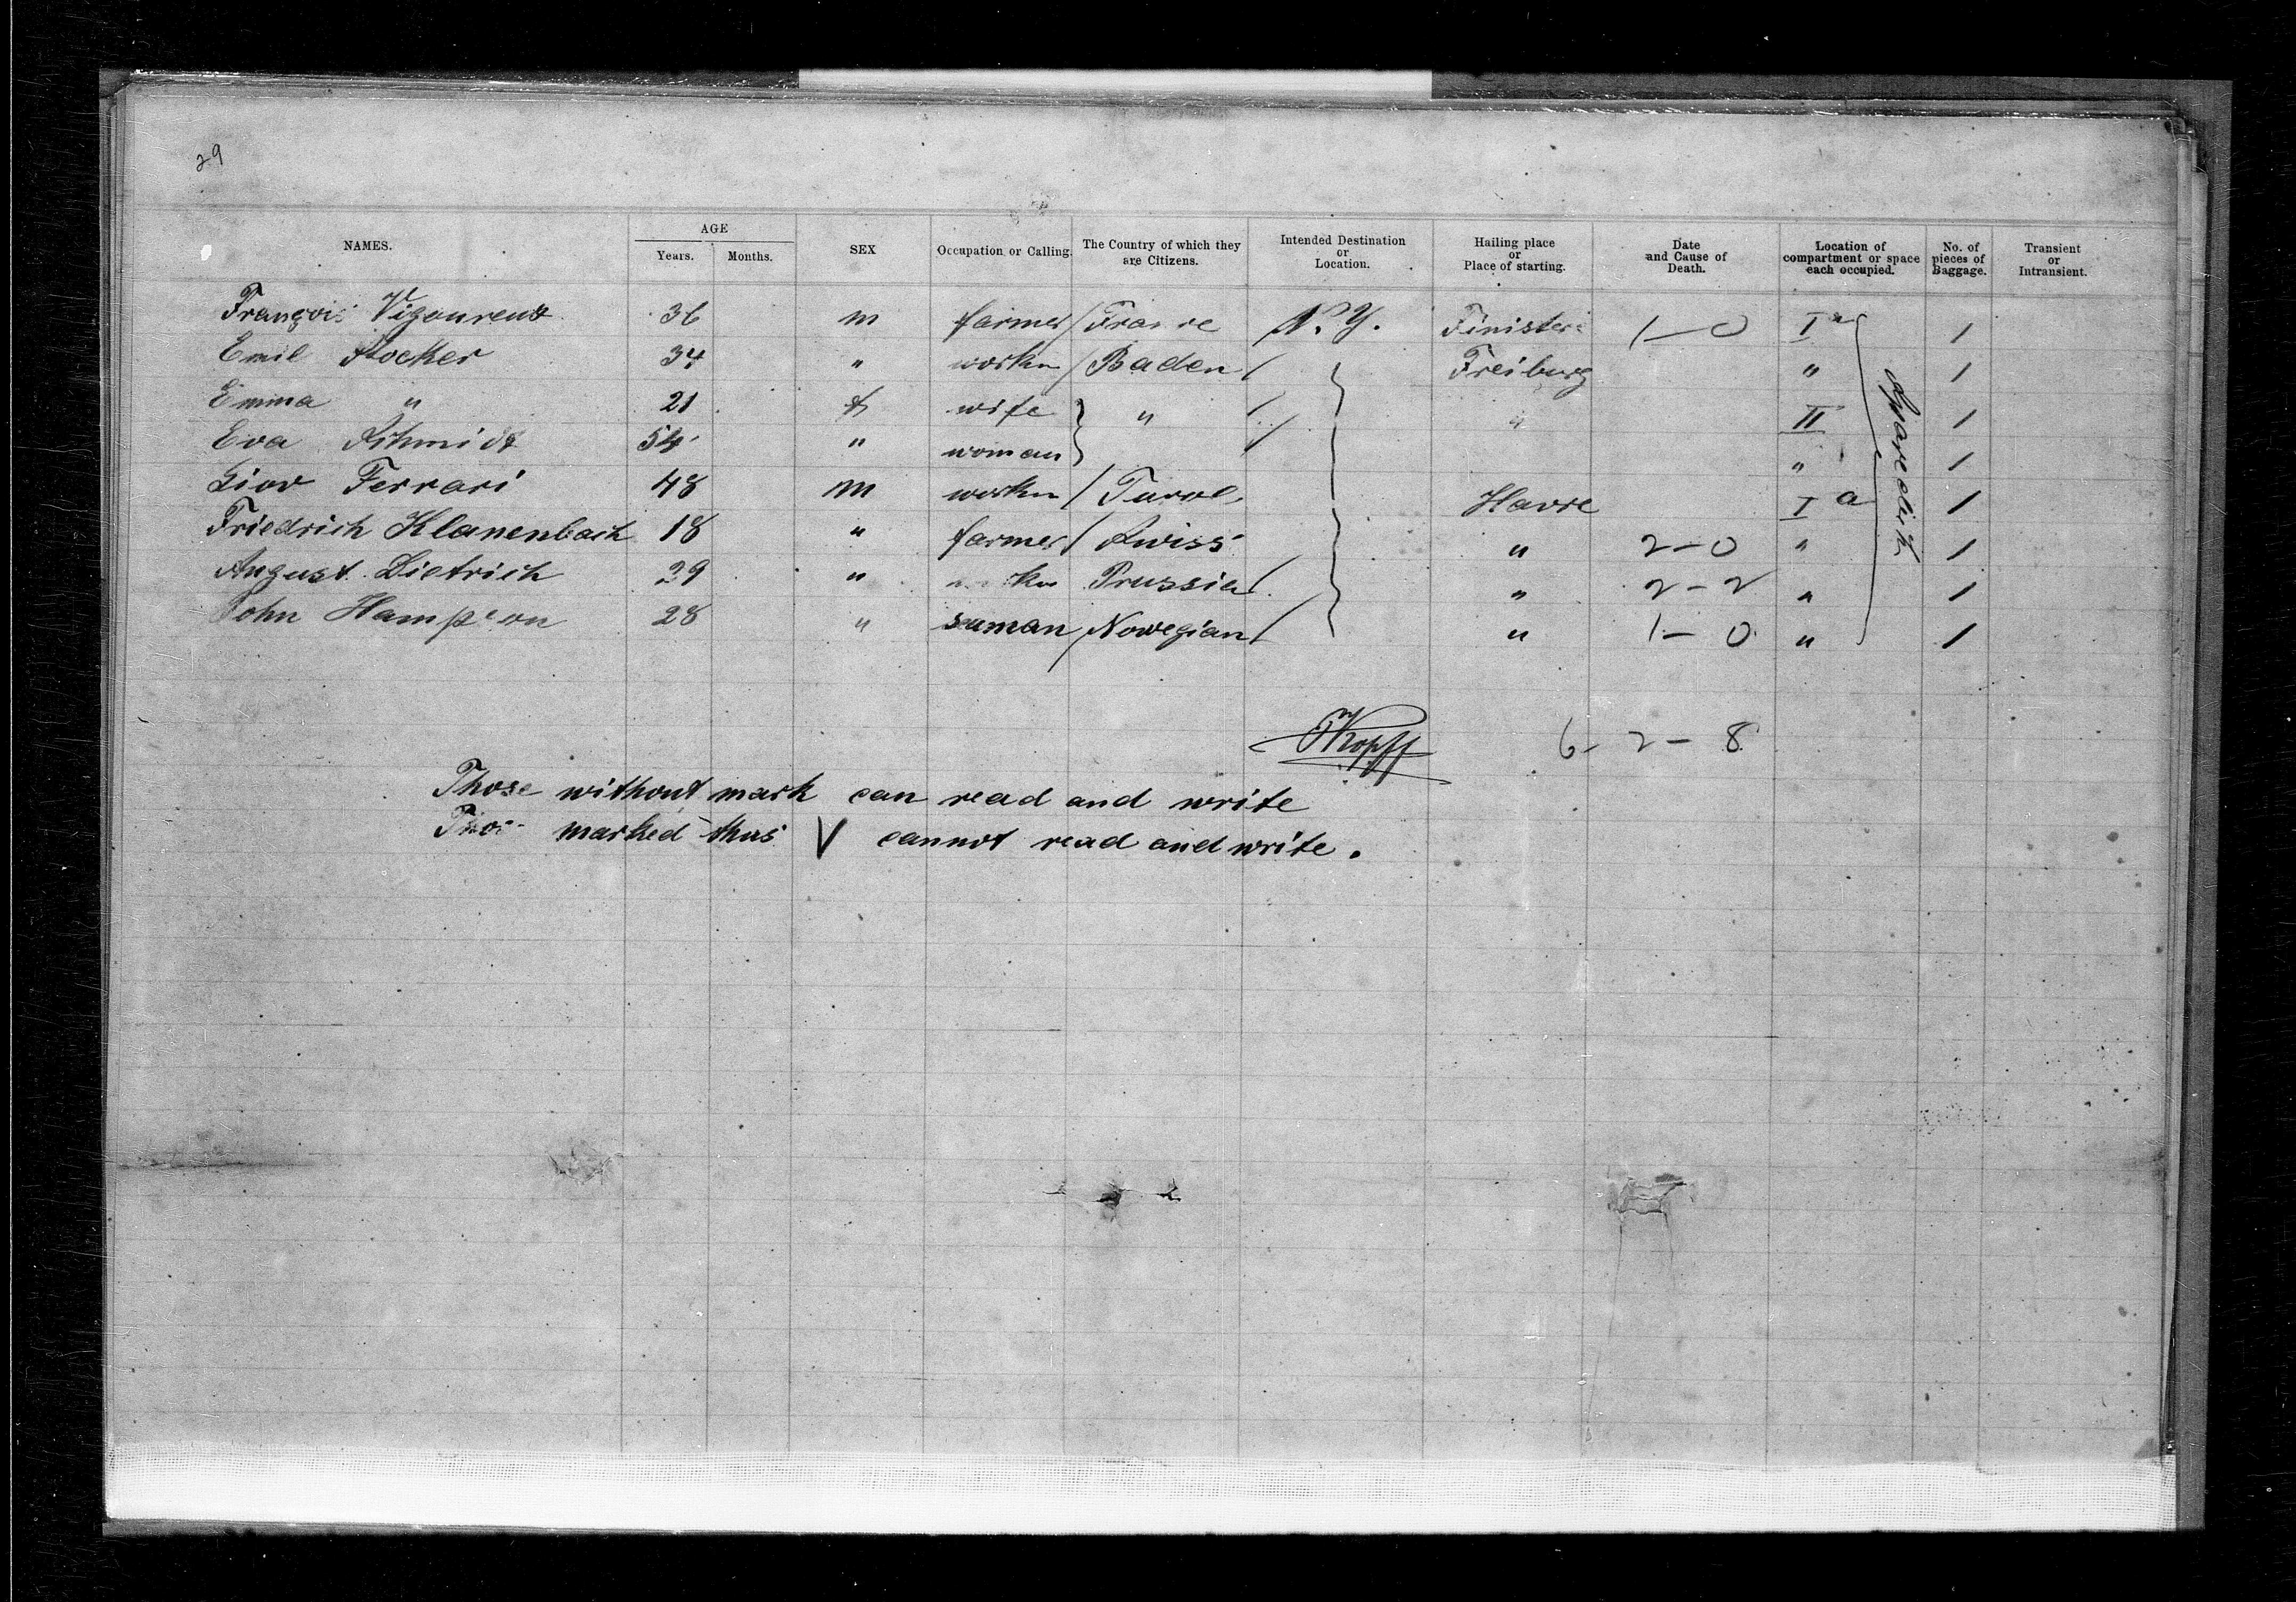 29
NAMES. AGE Years. Months. SEX Occupation or Calling. The Country of which they are Citizens. Intended Destination or Location. Hailing place or Place of starting. Date and Cause of Death. Location of compartment or space each occupied. No. of pieces of Baggage. Transient or Intransient.
François Vigoureux 36 m farmer / France N. Y. Finistere 1-0 I a 1
Emil Stocker 34 " workm / Baden / Freiburg " 1
Emma " 21 f wife " / " II 1
Eva Schmidt 54 " woman / " 1
Giov Ferrari 48 m workm / Havre I a 1
Friedrich Klanenbach 18 " farmer / Swiss " 2-0 " 1
August Dietrich 29 " Prussia / " 2-2 " 1
John 28 " seaman / Nowegian / " 1-0 " 1
6-2-8
Those without mark can read and write
Those marked thus V cannot read and write.